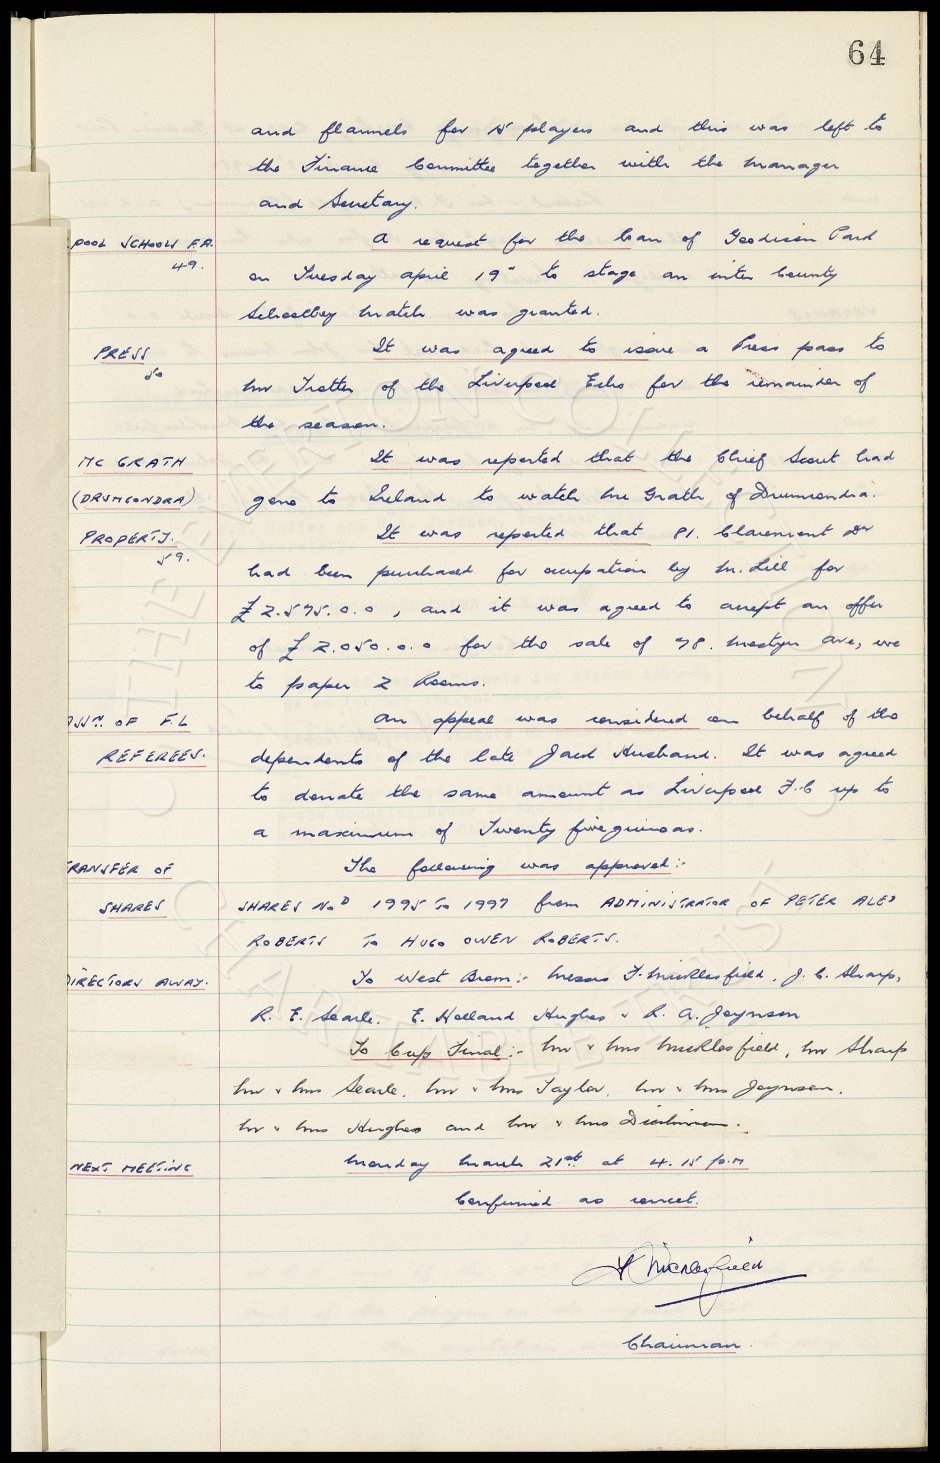 64
and flannels for 15 players and this was left to
the Finance Committee together with the Manager
and Secretary.
POOL SCHOOLS F.A. A request for the loan of Goodison Park
49. on Tuesday April 19" to stage an inter County
Schoolboy Match was granted.
PRESS It was agreed to issue a Press pass to
50 Mr Trotter of the Liverpool Echo for the remainder of
the season.
MC GRATH It was reported that the Chief Scout had
(DRUMCONDRA) gone to Ireland to watch McGrath of Drumcondra.
PROPERTY. It was reported that 81. Claremont Dr
59. had been purchased for occupation by M. Lill for
£2.575.0.0, and it was agreed to accept an offer
of £2.050.0.0 for the sale of 78. Mostyn Ave, we
to paper 2 Rooms.
ASSN. OF F.L An appeal was considered on behalf of the
REFEREES. dependents of the late Jack Husband. It was agreed
to donate the same amount as Liverpool F.C up to
a maximum of Twenty five guineas.
TRANSFER OF The following was approved:-
SHARES SHARES NOD 1995 TO 1997 from ADMINISTRATOR OF PETER ALED
ROBERTS TO HUGO OWEN ROBERTS.
DIRECTORS AWAY. To West Brom:- Messrs F. Micklesfield, J. C. Sharp,
R. E. Searle. E. Holland Hughes & R. A. Joynson
To Cup Final:- Mr & Mrs Micklesfield, Mr Sharp
Mr & Mrs Searle, Mr & Mrs Taylor, Mr & Mrs Joynson.
Mr & Mrs Hughes and Mr & Mrs Dickinson.
NEXT MEETING Monday March 21st at 4.15 p.m
Confirmed as correct.
Chairman.
THE EVERTON COLLECTION
CHARITABLE TRUST